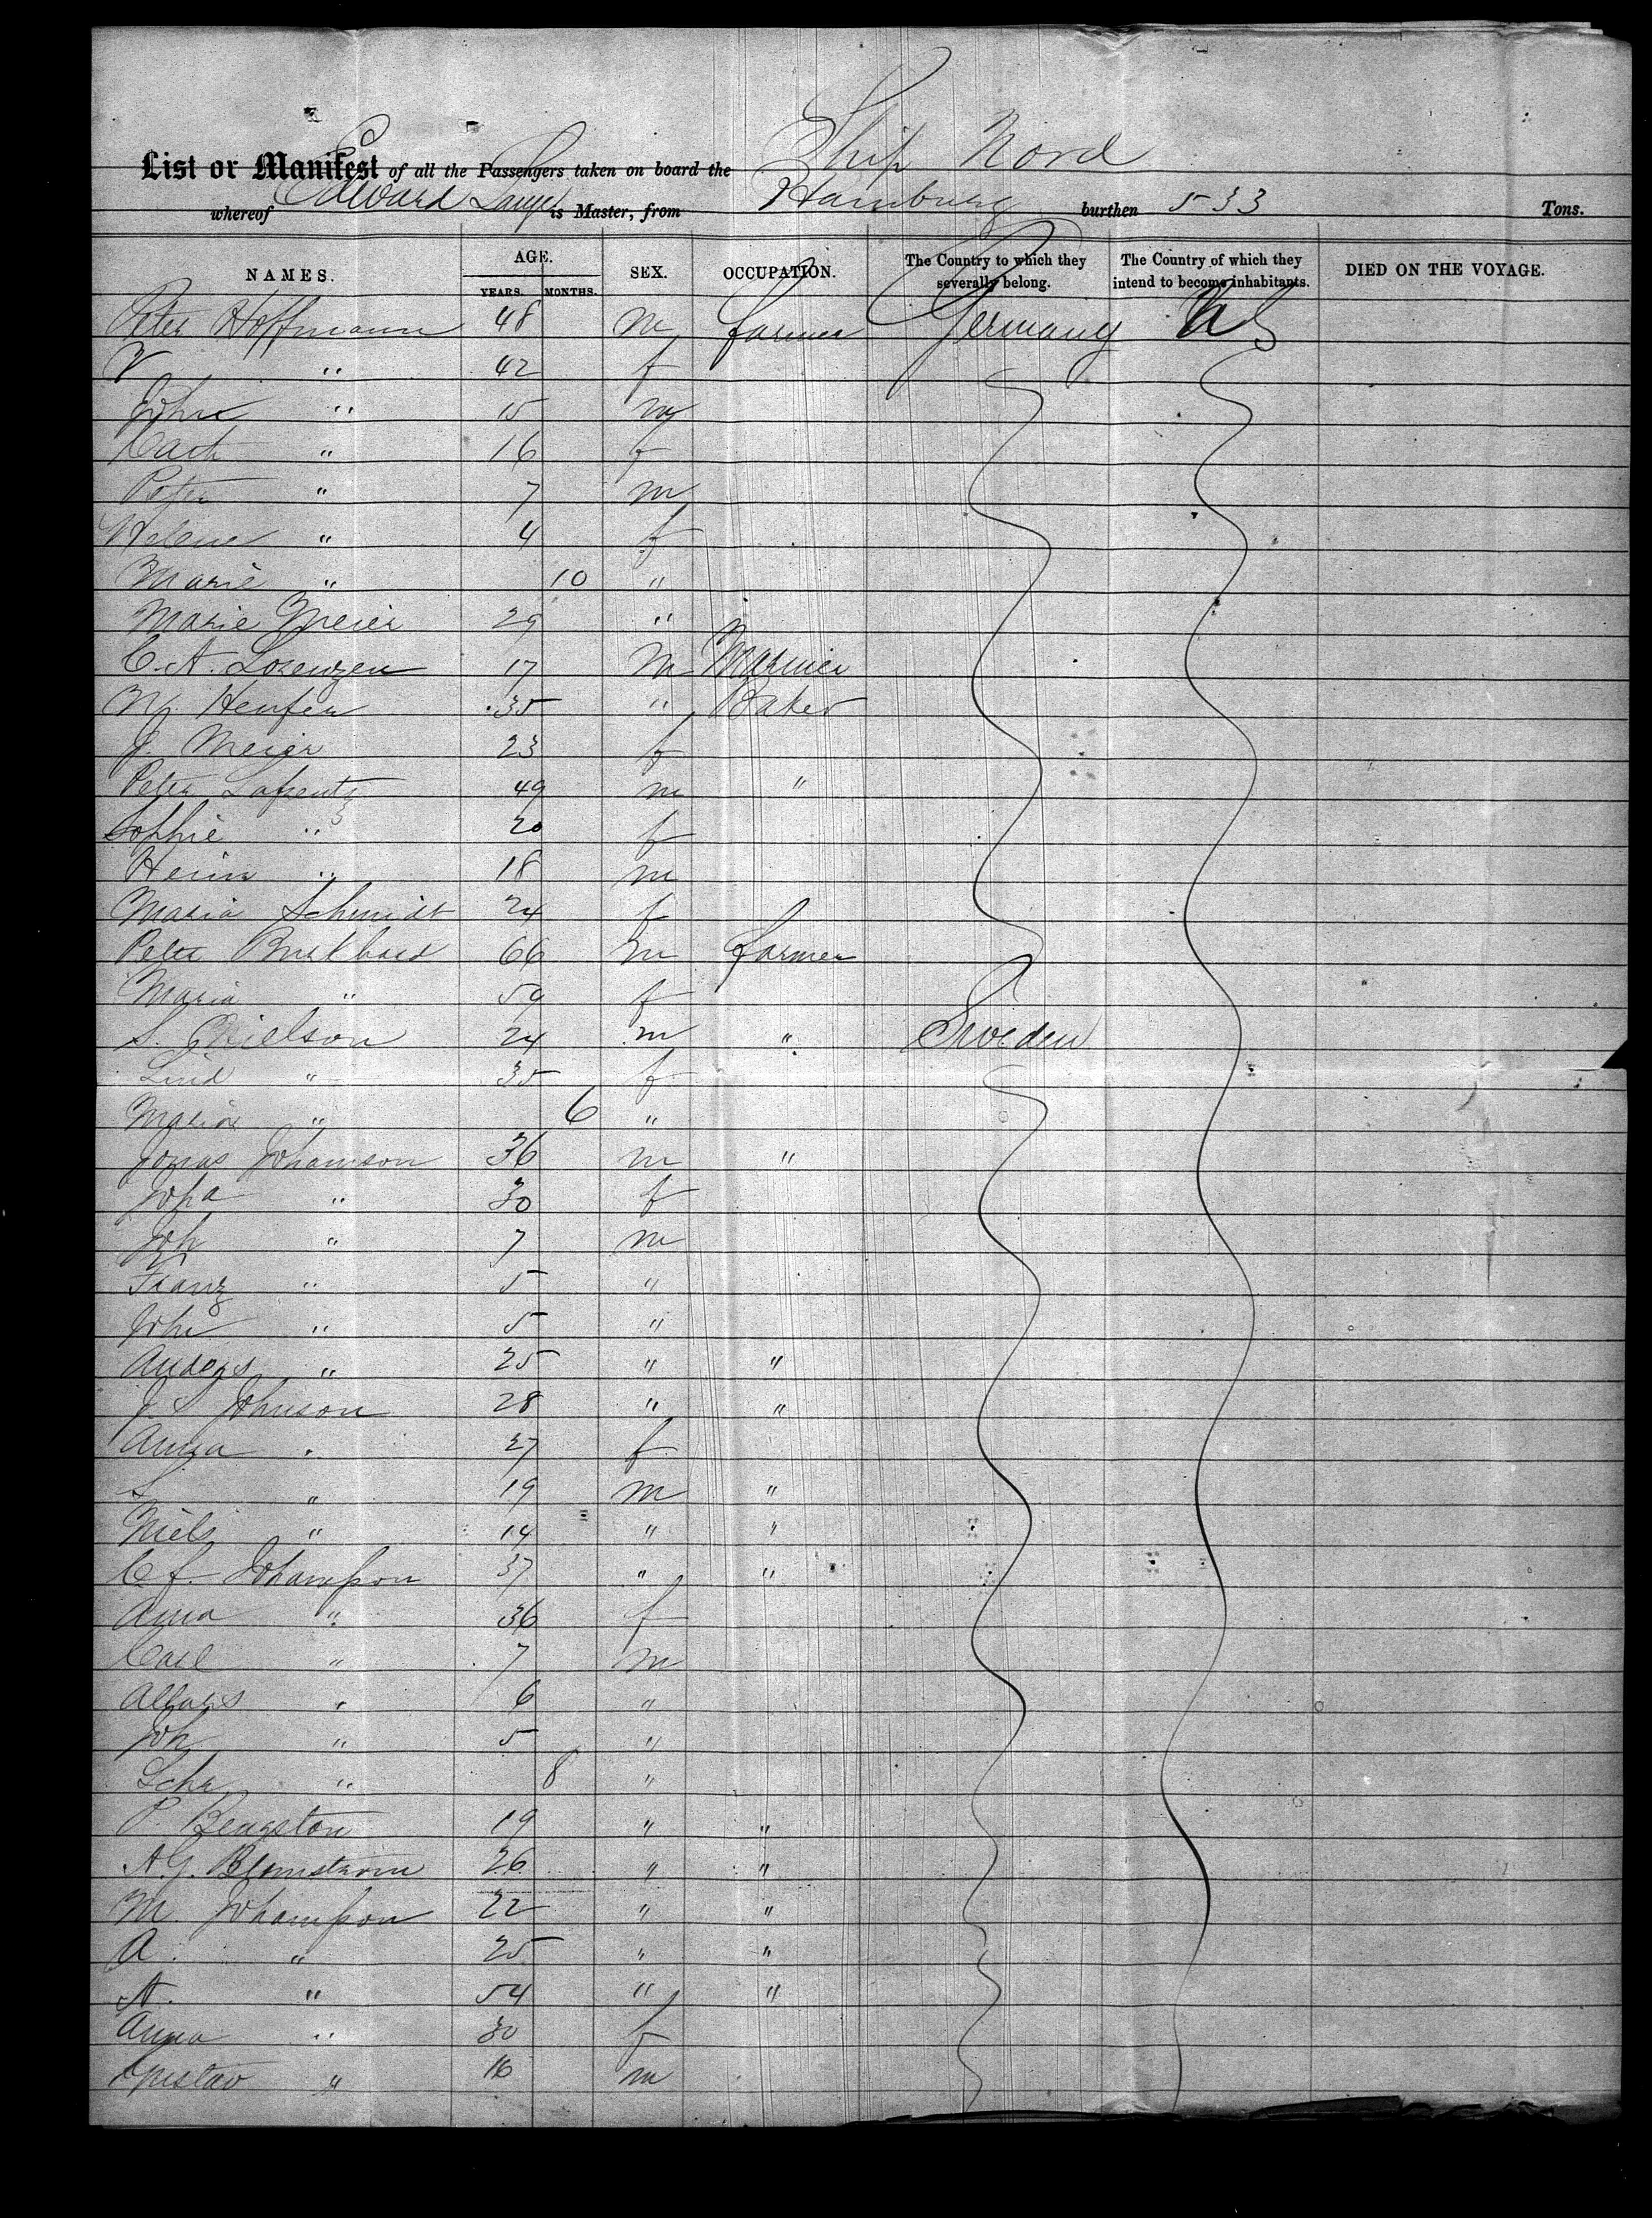 Ship Nord
List or Manifest of all the Passengers taken on board the
whereof Edward is Master, from Hamburg burthen 533 Tons.
NAMES. AGE. YEARS. MONTHS. SEX. OCCUPATION. The Country to which they severally belong. The Country of which they intend to become inhabitants. DIED ON THE VOYAGE.
Peter Hoffmann 48 m farmer Germany U S
" 42 f
John " 15 m
Cath " 16 f
Peter " 7 m
Helene " 4 f
Marie " 10 "
Marie Meier 29 "
C. A. Lorenzen 17 m Mariner
35 " Baker
J. Meier 23 f
Peter 49 m "
Sophie " 20 f
Heinr " 18 m
Maria Schmidt 24 f
Peter Burkhard 66 m farmer
Maria " 59 f
S. Nielson 24 m " Sweden
" 35 f
" 6 "
Jonas Johannson 36 m "
Joha " 30 f
Joh " 7 m
Franz " 5 "
Joh " 5 "
Anders " 25 " "
J. S. Johnson 28 " "
Anna " 27 f
S. " 19 m "
Niels " 14 " "
C f. Johansson 37 " "
Anna " 36 f
Carl " 7 m
" 6 "
Joh " 5 "
" 8 "
P. Bengston 19 " "
A. G. Blomstrom 26 " "
M. Johansson 22 " "
A. " 25 " "
A. " 54 " "
Anna " 30 f
Gustav " 16 m